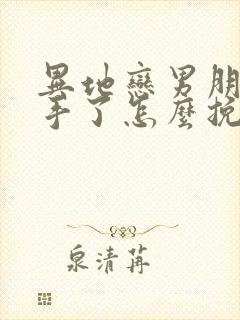 異地戀男朋
手了怎麼挽
泉清苒